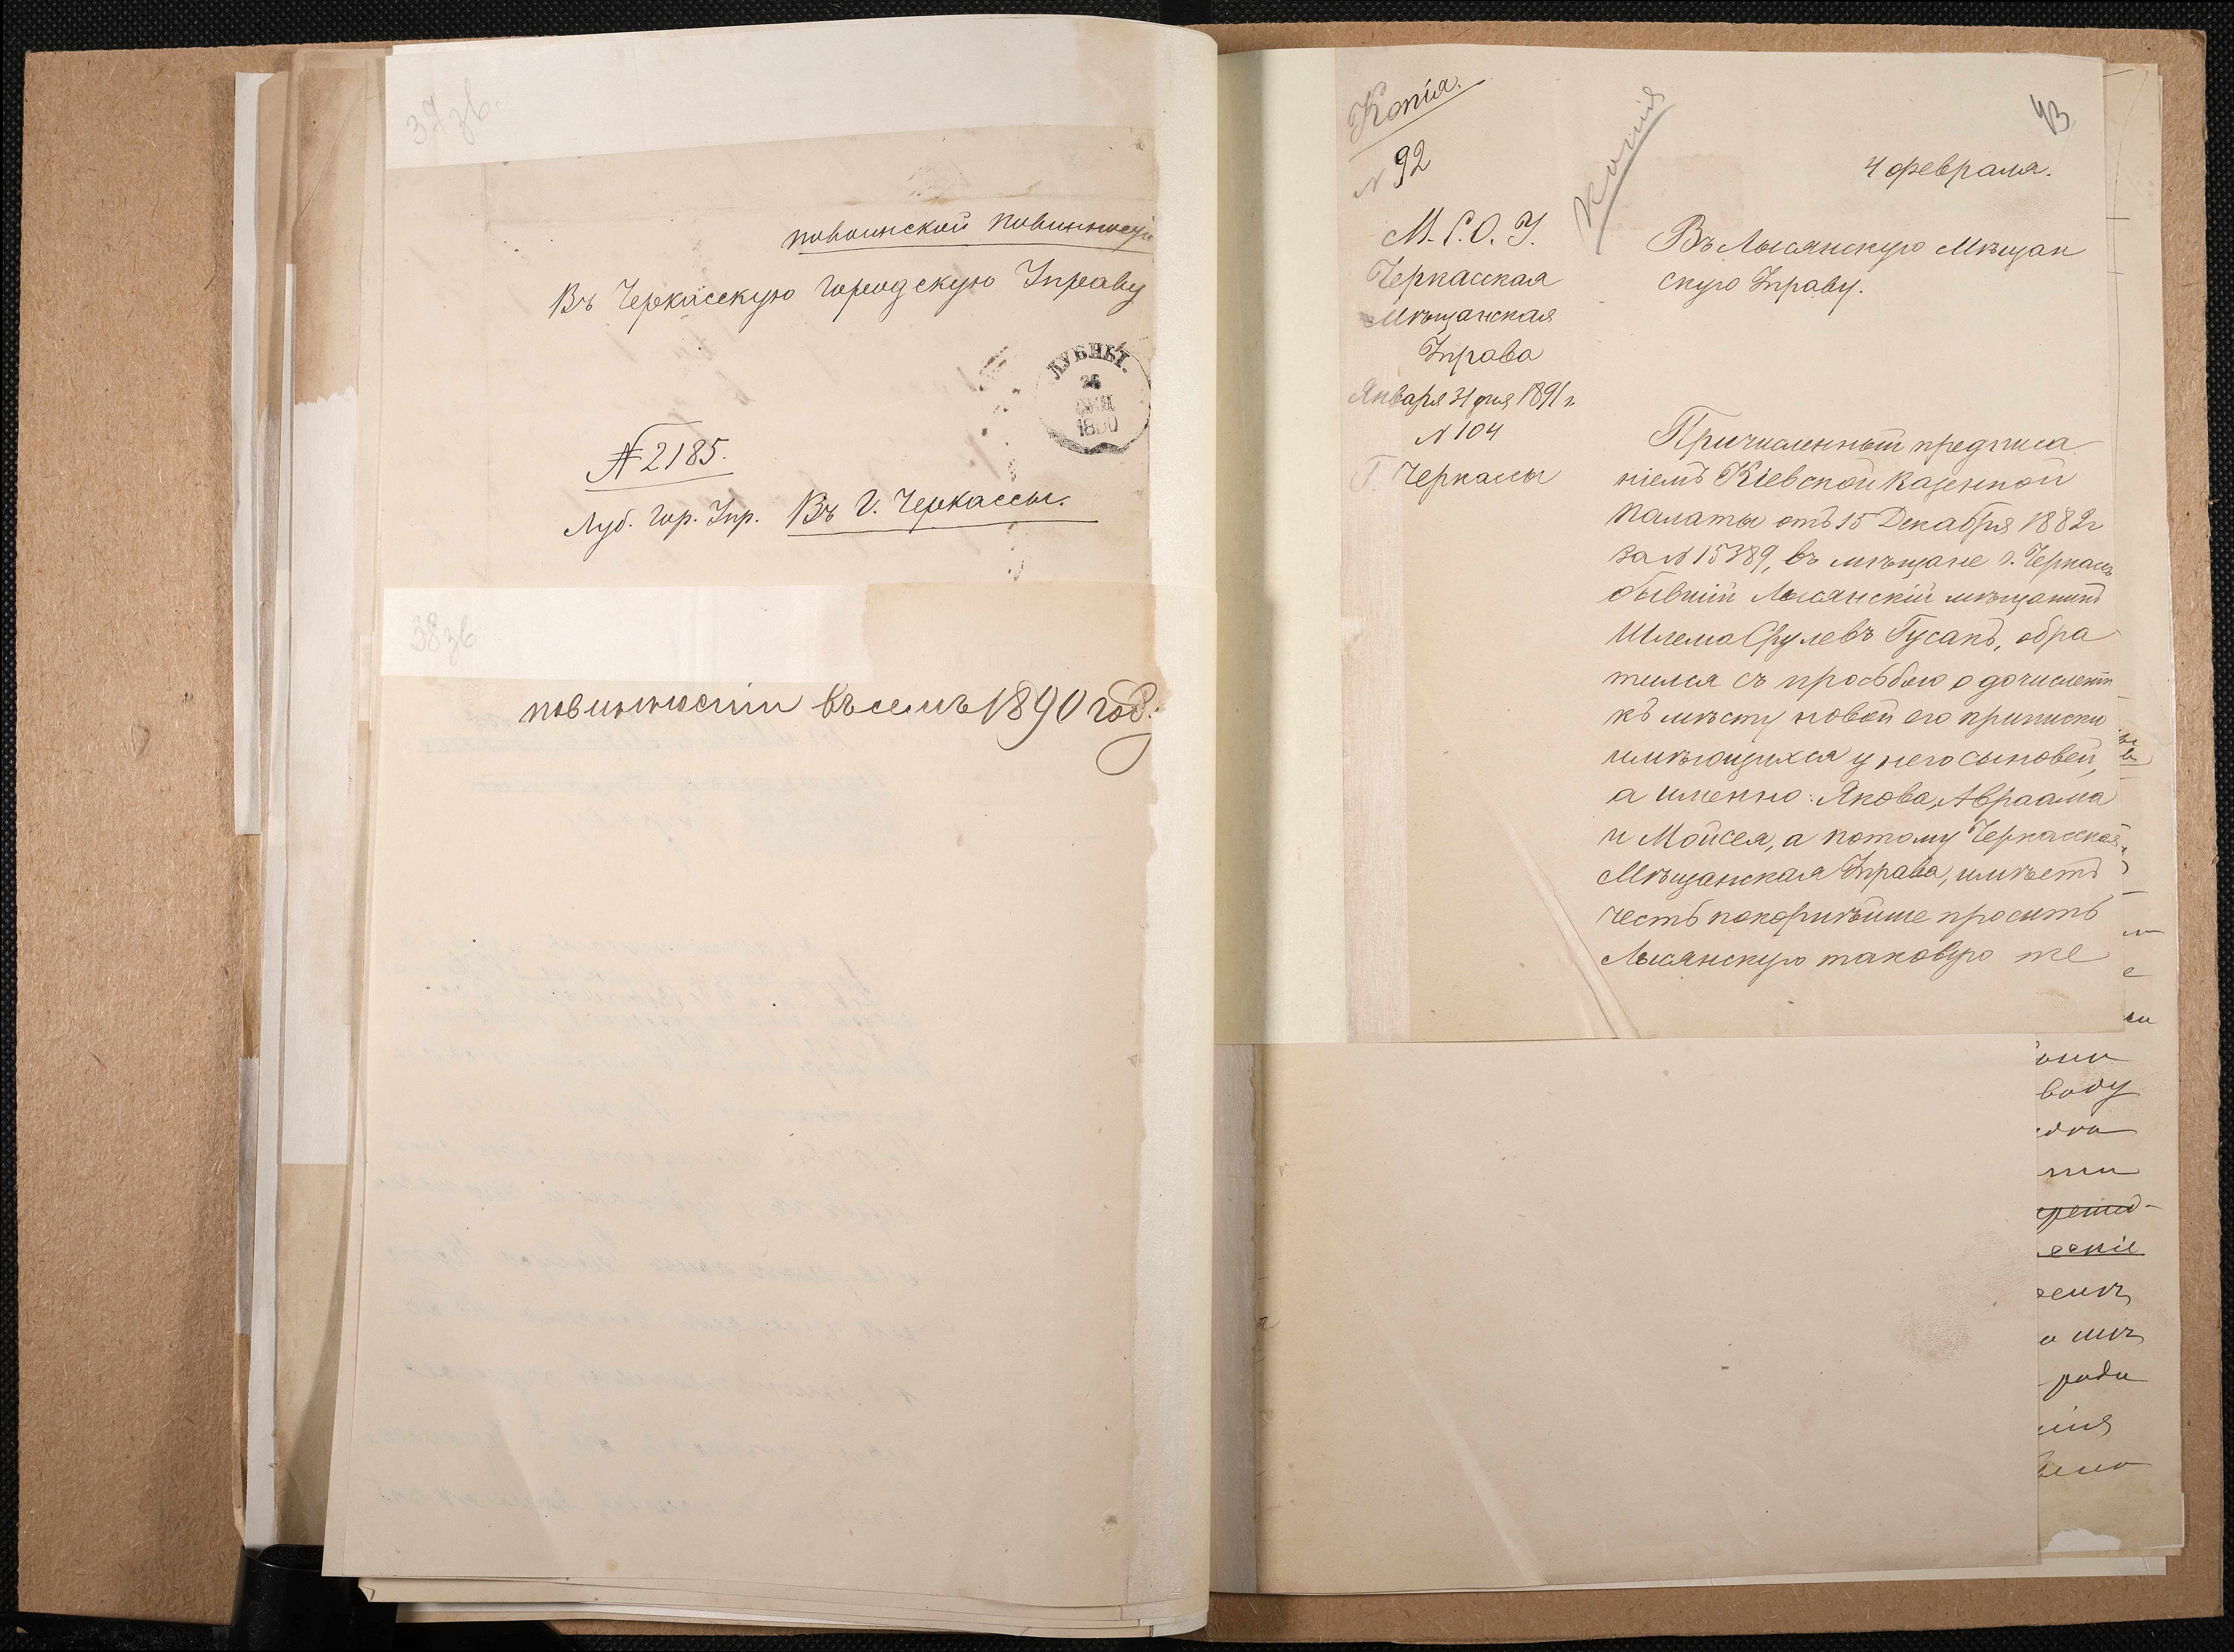 37зв.
по воинской повинности
Въ Черкасскую городскую Управу
ЛУБНЫ.
26
ОКТ
1890
№ 2185.
Луб. гор. Упр. Въ г. Черкассы.
38зв
повинности въ семъ 1890 год.
Копія.
Копия
43
№ 92
4 февраля.
М. С. О. У.
Черкасская
Мѣщанская
Управа
Января 31 дня 1891 г.
№ 104
Г. Черкасы
Въ Лысянскую Мѣщан
скую Управу.
Причисленный предписа
ніемъ Кіевской Казенной
Палаты отъ 15 Декабря 1882 г
за № 15389, въ мѣщане г. Черкасъ
бывшій Лысянскій мѣщанинъ
Шлема Срулевъ Гусакъ, обра
тился съ просьбою о дочислени
къ мѣсту новой его приписки
имѣющихся у него сыновей,
а именно: Якова, Авраама
и Мойсея, а потому Черкасская
Мѣщанская Управа, имѣетъ
честь покорнѣйше просить
Лысянскую таковую же
воду
ескіе
рода
нія